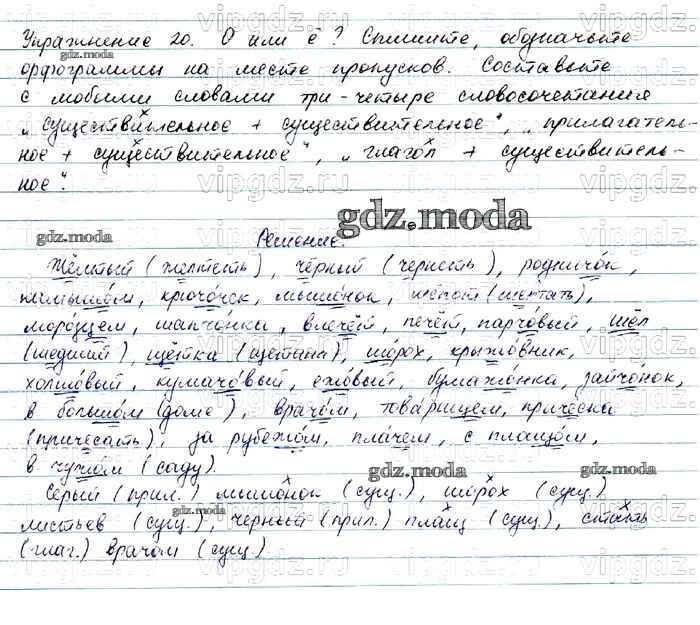 Упражнение 20. О или ё? Спишите, обозначьте
орфограммы на месте пропусков. Составьте
с любыми словами три-четыре словосочетания
„существительное + существительное", „прилагатель-
ное + существительное", „глагол + существитель-
ное".
gdz.moda
Решение.
Жёлтый (желтеть), чёрный (чернеть), родничок,
камышом, крючочек, мышонок, шёпот (шептать),
морозцем, шапчонка, влечёт, печёт, парчовый, шёл
(шедший), щётка (щетина), шорох, крыжовник,
холщовый, кумачовый, ежовый, бумажонка, зайчонок,
в большом (доме), врачом, товарищем, причёска
(причесать), за рубежом, плачем, с плащом,
в чужом (саду).
Серый (прил.) мышонок (сущ.), шорох (сущ.)
листьев (сущ.), черный (прил.) плащ (сущ.), стать
(глаг.) врачом (сущ.).